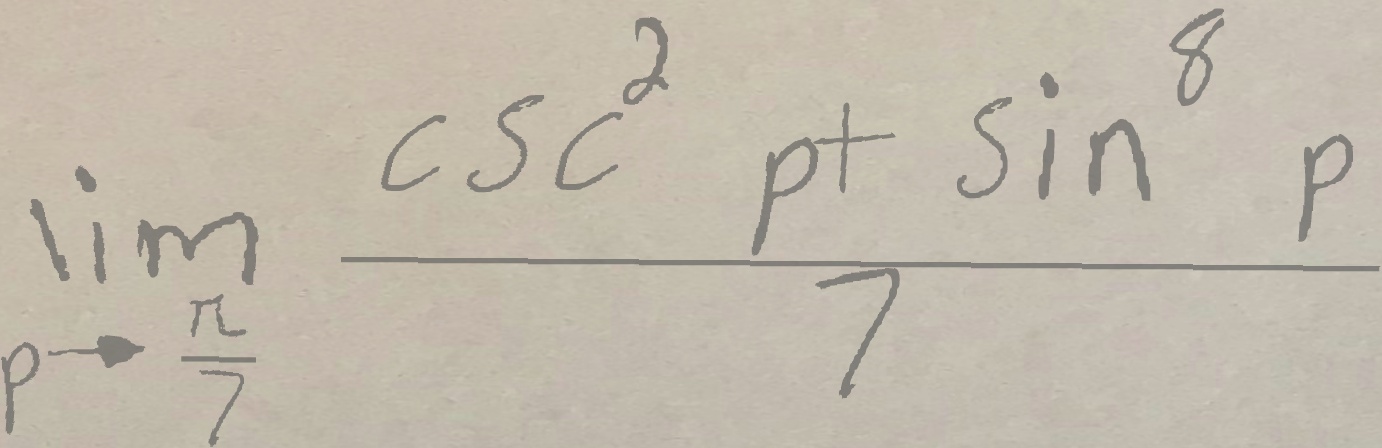 lim p→π/7 (csc² p + sin⁸ p)/7